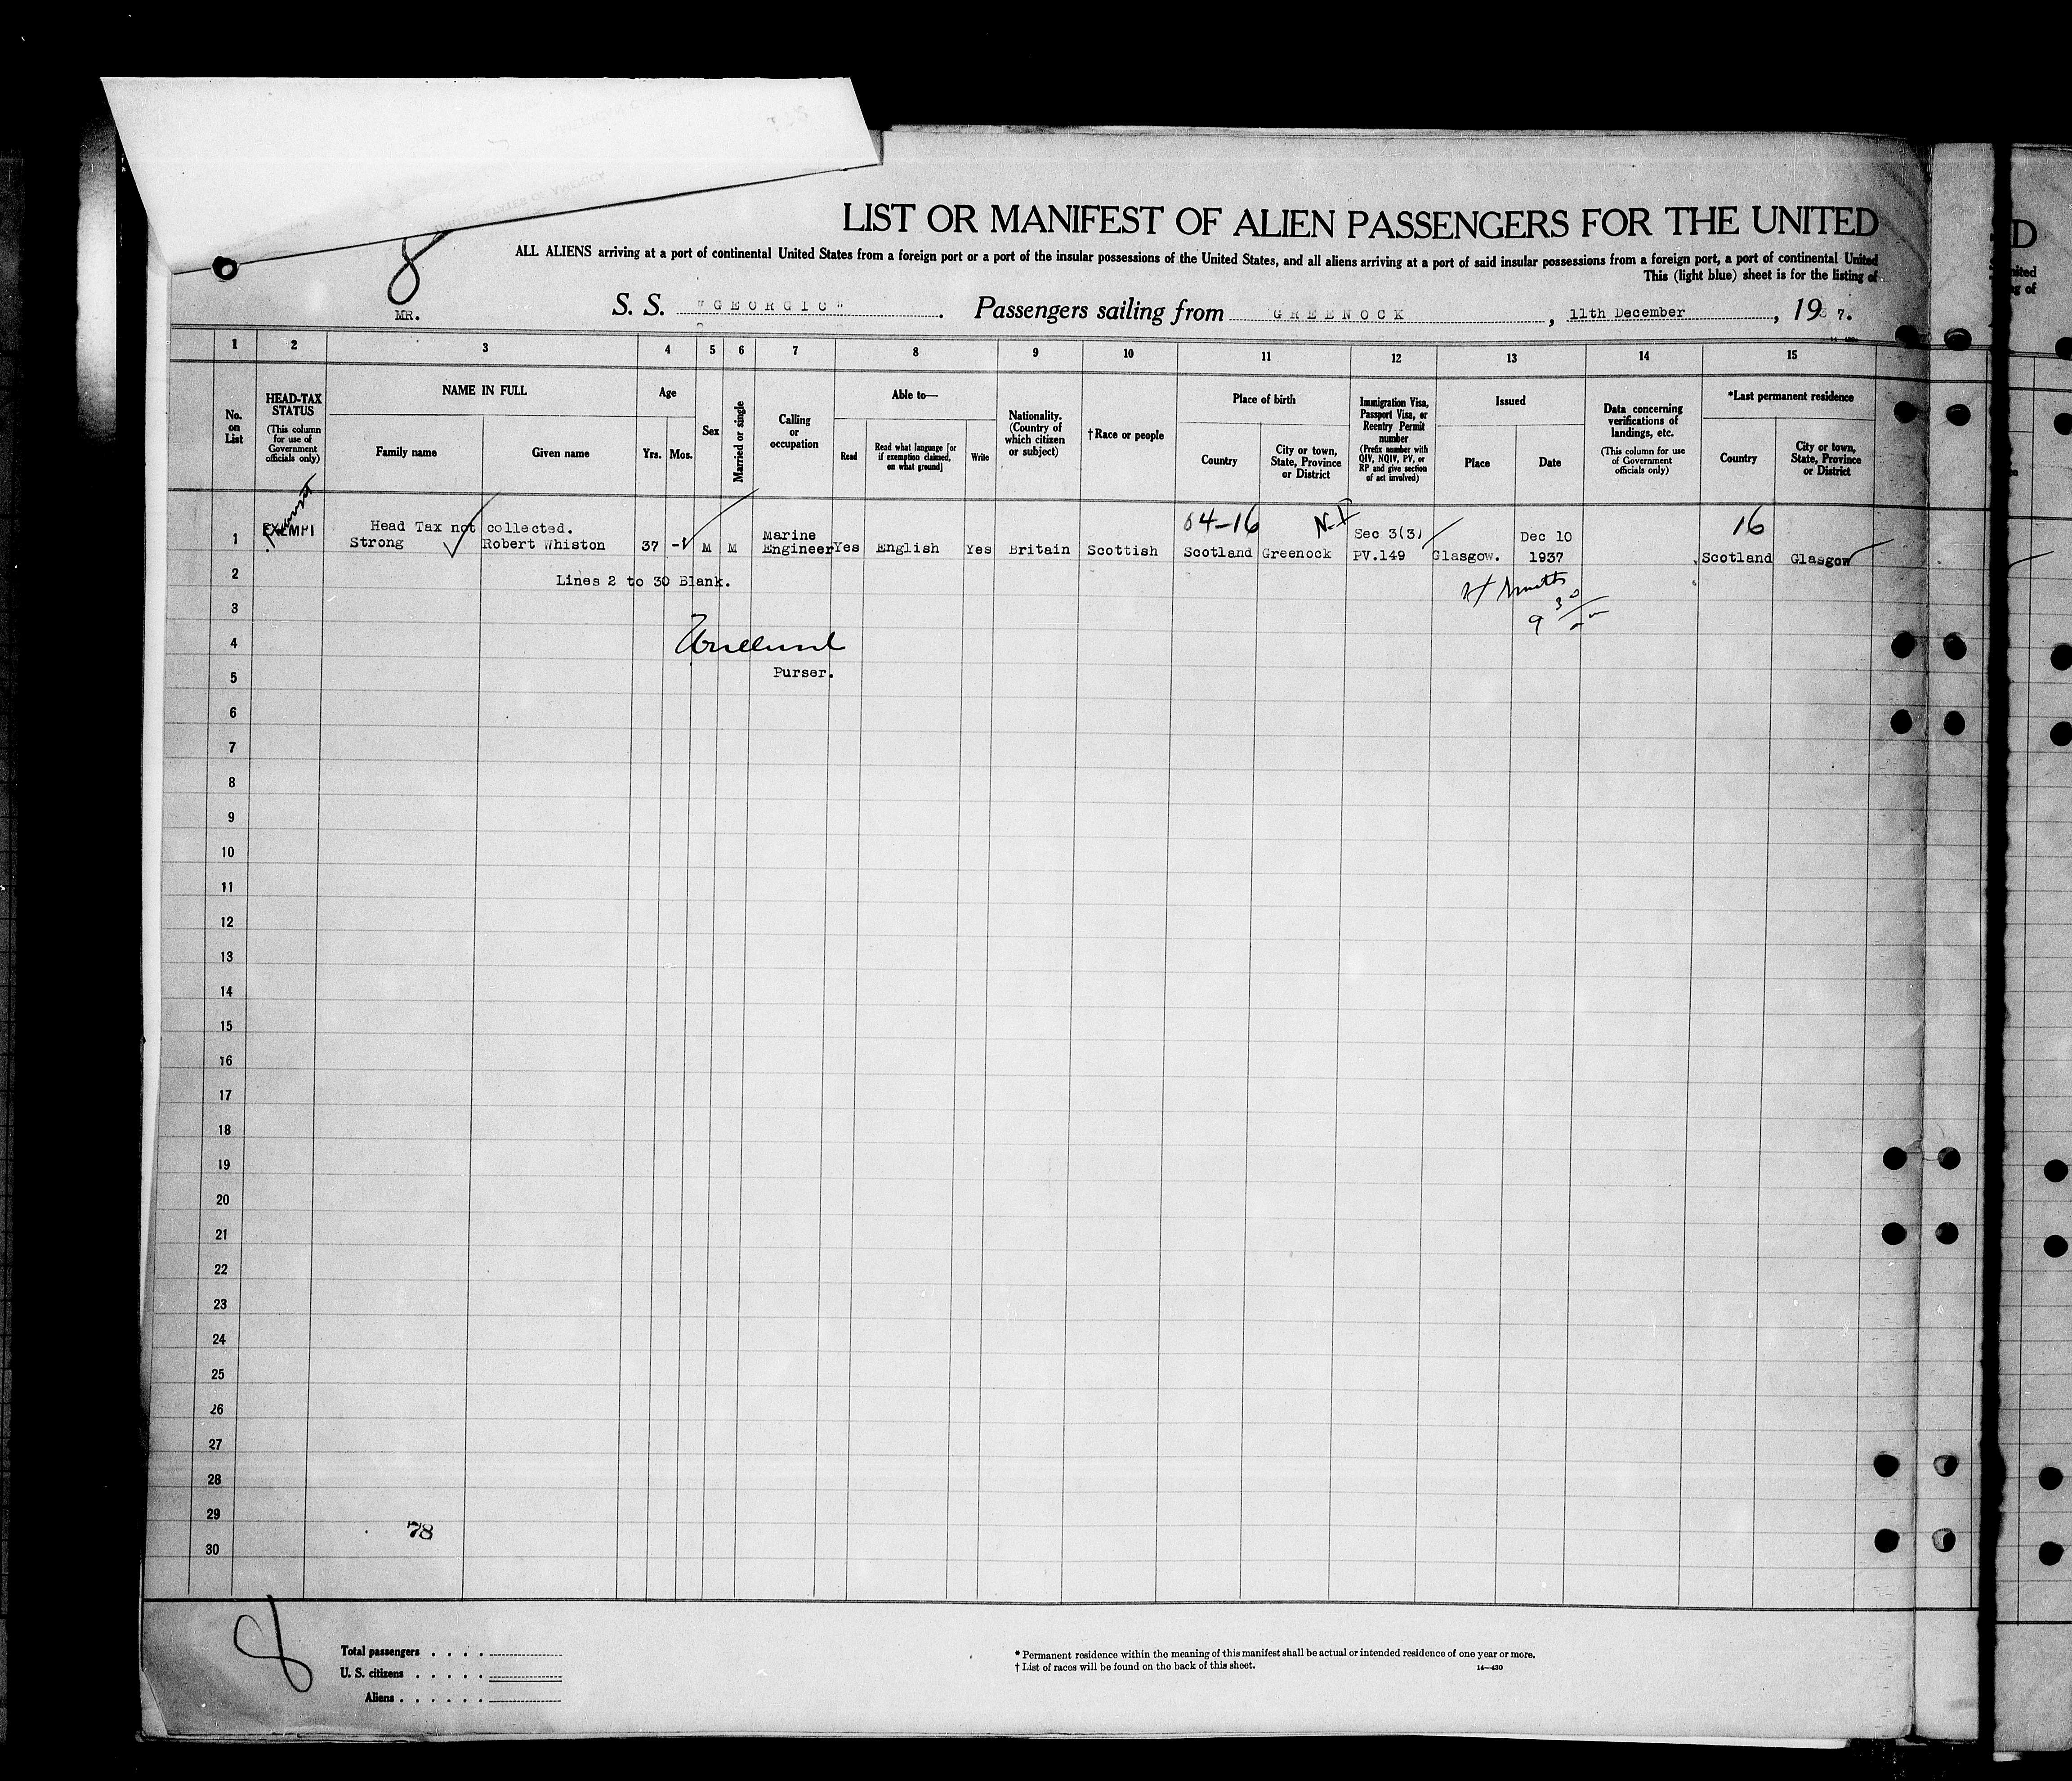 LIST OR MANIFEST OF ALIEN PASSENGERS FOR THE UNITED
ALL ALIENS arriving at a port of continental United States from a foreign port or a port of the insular possessions of the United States, and all aliens arriving at a port of said insular possessions from a foreign port, a port of continental United
This (light blue) sheet is for the listing of
8
MR.
S. S. "GEORGIC". Passengers sailing from GREENOCK, 11th December, 1937.
1 2 3 4 5 6 7 8 9 10 11 12 13 14 15
No. on List
HEAD-TAX STATUS
(This column for use of Government officials only)
NAME IN FULL
Family name
Given name
Age
Yrs. Mos.
Sex
Married or single
Calling or occupation
Able to—
Read
Read what language [or if exemption claimed, on what ground]
Write
Nationality. (Country of which citizen or subject)
†Race or people
Place of birth
Country
City or town, State, Province or District
Immigration Visa, Passport Visa, or Reentry Permit number
(Prefix number with QIV, NQIV, PV, or RP and give section of act involved)
Issued
Place
Date
Data concerning verifications of landings, etc.
(This column for use of Government officials only)
*Last permanent residence
Country
City or town, State, Province or District
Head Tax not collected.
04-16
16
1 EXEMPT Strong Robert Whiston 37 - M M Marine Engineer Yes English Yes Britain Scottish Scotland Greenock Sec 3(3) PV.149 Glasgow. Dec 10 1937 Scotland Glasgow
2 Lines 2 to 30 Blank.
3
4
5 Purser.
6
7
8
9
10
11
12
13
14
15
16
17
18
19
20
21
22
23
24
25
26
27
28
29
78
30
8
Total passengers . . . .
U. S. citizens . . . . .
Aliens . . . . . .
* Permanent residence within the meaning of this manifest shall be actual or intended residence of one year or more.
† List of races will be found on the back of this sheet.
14—430